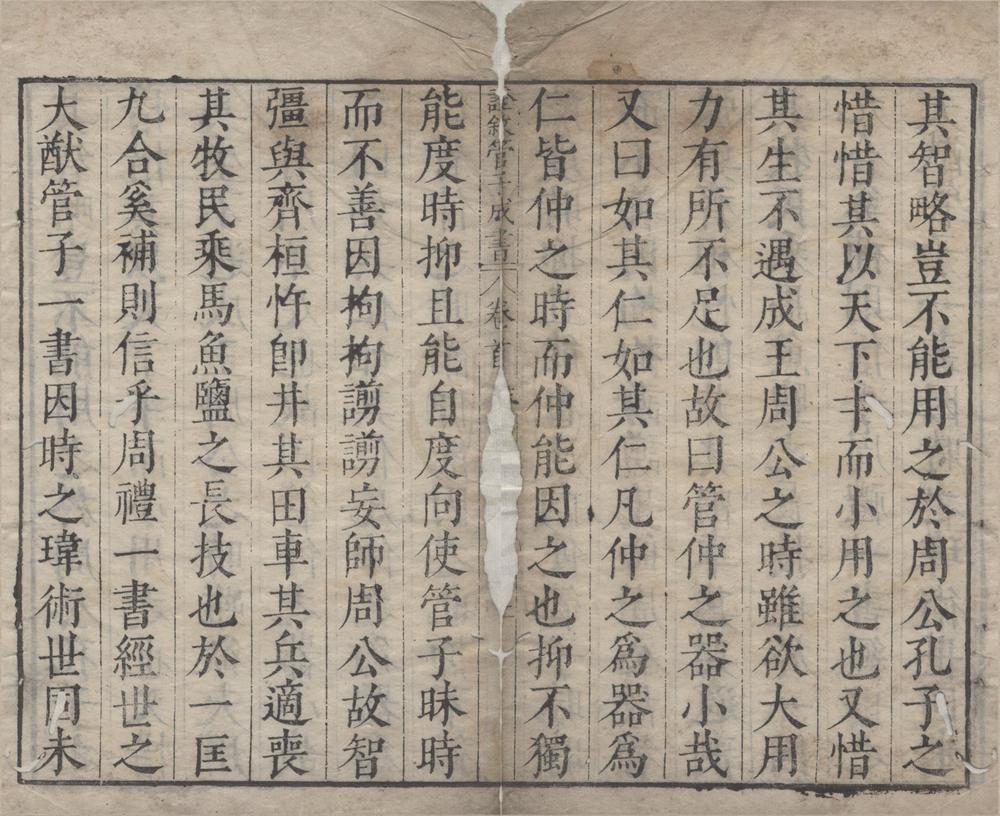 其智略豈不能用之於周公孔子之
惜惜其以天下才而小用之也又惜
其生不遇成王周公之時雖欲大用
力有所不足也故曰管仲之器小哉
又曰如其仁如其仁凡仲之爲器爲
仁皆仲之時而仲能因之也抑不獨
詮敘管子成書 卷首
能度時抑且能自度向使管子昧時
而不善因拘拘謭謭妄師周公故智
彊與齊桓忤卽井其田車其兵適喪
其牧民乘馬魚鹽之長技也於一匡
九合奚補則信乎周禮一書經世之
大猷管子一書因時之瑋術世固未